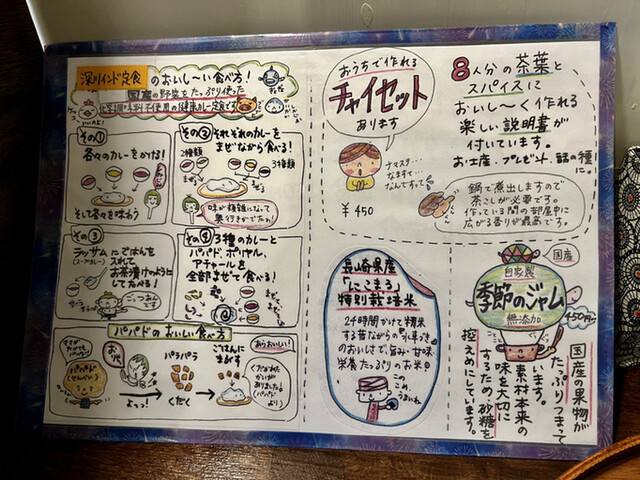 深川インド定食 のおいし〜い食べ方!
国産の野菜をたっぷり使った
化学調味料不使用の健康カレー定食です
その①
各々のカレーをかける!
そして各々を味わう
その② それぞれのカレーを
まぜながら食べる!
2種類
3種類
まぜ
味が複雑になって
奥行きがでたわ!
その③ ラッサムにごはんを
(スープカレー)
入れて
お茶漬けのように
してたべる!
ごっつぁんです
その④ 3種のカレーと
パパド、ポリヤル、
アチャールを
全部まぜて食べる!
パパドのおいしい食べ方
パパド
(せんべい)
よっこ!
パラパラ
くだく
ごはんに
まぶす
あらおいしい!
おうちで作れる
チャイセット
あります
ナマステ…
なますて…
なんですって
¥450
8人分の茶葉と
スパイスに
おいし〜く作れる
楽しい説明書が
付いています。
お土産、プレゼント、話の種に。
鍋で煮出しますので
茶こしが必要です。
作っている間の部屋中に
広がる香りが最高です。
長崎県産
「にこまる」
特別栽培米
24時間かけて精米
する昔ながらの
のおいしさで、旨み・甘味
栄養たっぷりのお米
こめ、
うまいね
国産
自家製
季節のジャム
無添加
450円〜
国産の果物が
たっぷりつまって
います。
素材本来の
味を大切に
するため、砂糖を
控えめにしています。